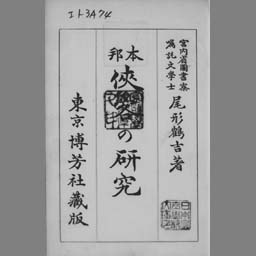 エト3A74
宮内省圖書寮
囑託文學士
尾形鶴吉著
本邦
侠客の研究
東京博芳社藏版